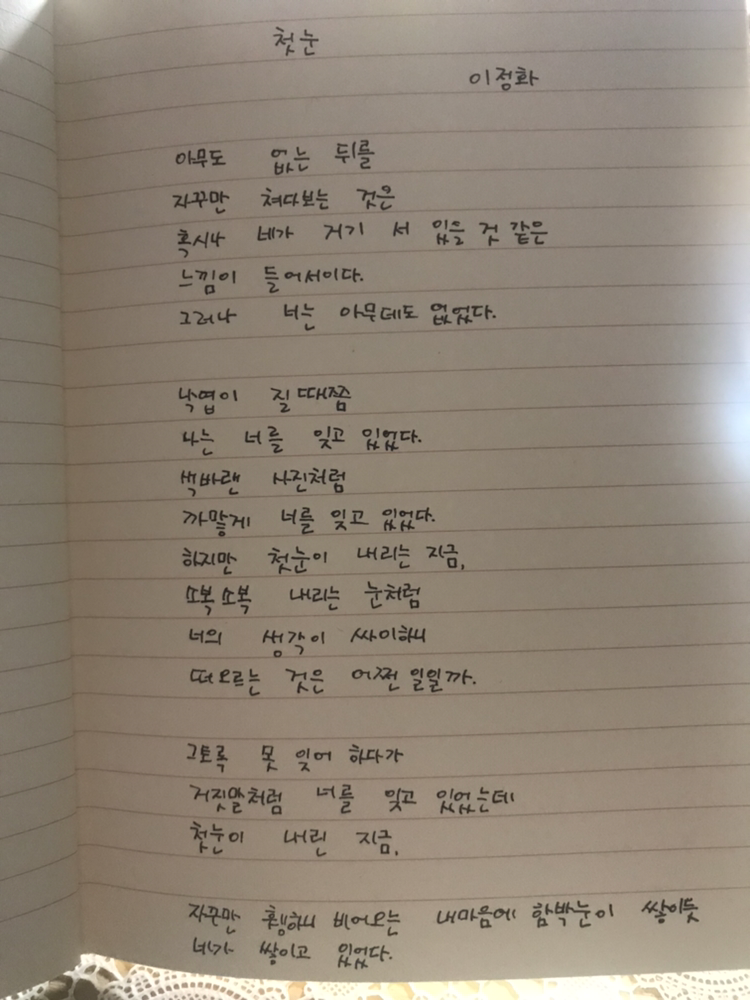 첫눈
이정화
아무도 없는 뒤를
자꾸만 쳐다보는 것은
혹시나 네가 거기 서 있을 것 같은
느낌이 들어서이다.
그러나 너는 아무데도 없었다.
낙엽이 질 때쯤
나는 너를 잊고 있었다.
색바랜 사진처럼
까맣게 너를 잊고 있었다.
하지만 첫눈이 내리는 지금,
소복소복 내리는 눈처럼
너의 생각이 싸이하니
떠오르는 것은 어쩐 일일까.
그토록 못 잊어 하다가
거짓말처럼 너를 잊고 있었는데
첫눈이 내린 지금,
자꾸만 휑하니 비어오는 내마음에 함박눈이 쌓이듯
네가 쌓이고 있었다.